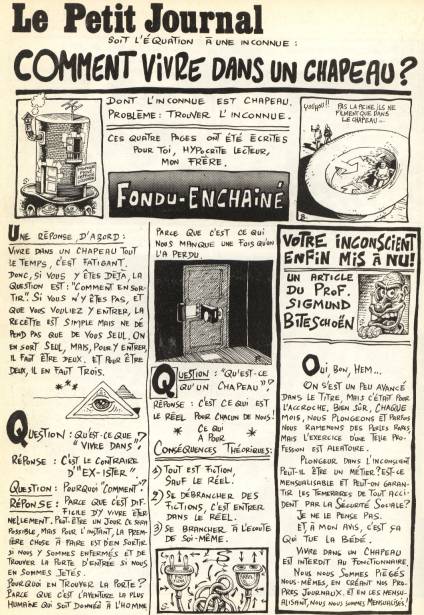 Le Petit Journal
SOIT L'ÉQUATION À UNE INCONNUE :
COMMENT VIVRE DANS UN CHAPEAU ?
DONT L'INCONNUE EST CHAPEAU.
PROBLÈME : TROUVER L'INCONNUE.
CES QUATRE PAGES ONT ÉTÉ ÉCRITES
POUR TOI, HYPOCRITE LECTEUR,
MON FRÈRE.
FONDU-ENCHAÎNÉ
PAS LA PEINE, ILS NE
FILMENT QUE DANS
LE CHAPEAU -
UNE RÉPONSE D'ABORD :
VIVRE DANS UN CHAPEAU TOUT
LE TEMPS, C'EST FATIGANT.
DONC, SI VOUS Y ÊTES DÉJÀ, LA
QUESTION EST : "COMMENT EN SOR-
TIR". SI VOUS N'Y ÊTES PAS, ET
QUE VOUS VOULIEZ Y ENTRER, LA
RECETTE EST SIMPLE MAIS NE DÉ
PEND PAS QUE DE VOUS SEUL. ON
EN SORT SEUL, MAIS, POUR Y ENTRER,
IL FAUT ÊTRE DEUX. ET POUR ÊTRE
DEUX, IL EN FAUT TROIS.
QUESTION : QU'EST-CE QUE
"VIVRE DANS" ?
RÉPONSE : C'EST LE CONTRAIRE
D'"EX-ISTER"
QUESTION : POURQUOI "COMMENT" ?
RÉPONSE : PARCE QUE C'EST DIF-
FICILE D'Y VIVRE ÉTER-
NELLEMENT. PEUT-ÊTRE UN JOUR CE SERA
POSSIBLE, MAIS POUR L'INSTANT, LA PREM-
IÈRE CHOSE À FAIRE EST D'EN SORTIR
SI NOUS Y SOMMES ENFERMÉS ET DE
TROUVER LA PORTE D'ENTRÉE SI NOUS
EN SOMMES JETÉS.
POURQUOI EN TROUVER LA PORTE ?
PARCE QUE C'EST L'AVENTURE LA PLUS
HUMAINE QUI SOIT DONNÉE À L'HOMME
PARCE QUE C'EST CE QUI
NOUS MANQUE UNE FOIS QU'ON
L'A PERDU.
QUESTION : "QU'EST-CE
QU'UN CHAPEAU" ?
RÉPONSE : C'EST CE QUI EST
LE RÉEL POUR CHACUN DE NOUS !
CE QUI
A POUR
CONSÉQUENCES THÉORIQUES :
1) TOUT EST FICTION,
SAUF LE RÉEL.
2) SE DÉBRANCHER DES
FICTIONS, C'EST ENTRER
DANS LE RÉEL.
3) SE BRANCHER À L'ÉCOUTE
DE SOI-MÊME.
VOTRE INCONSCIENT
ENFIN MIS À NU !
UN ARTICLE
DU PROF.
SIGMUND
BITESCHOËN
OUI, BON, HEM...
ON S'EST UN PEU AVANCÉ
DANS LE TITRE, MAIS C'ÉTAIT POUR
L'ACCROCHE, BIEN SÛR, CHAQUE
MOIS, NOUS PLONGEONS ET PARFOIS
NOUS RAMENONS DES PERLES RARES,
MAIS L'EXERCICE D'UNE TELLE PRO-
FESSION EST ALÉATOIRE.
PLONGEUR DANS L'INCONSCIENT
PEUT-IL ÊTRE UN MÉTIER ? EST-CE
MENSUALISABLE ET PEUT-ON GARAN-
TIR LES TÉMÉRAIRES DE TOUT ACCI-
DENT PAR LA SÉCURITÉ SOCIALE ?
JE NE LE PENSE PAS.
ET, À MON AVIS, C'EST ÇA
QUI TUE LA BÉDÉ.
VIVRE DANS UN CHAPEAU
EST INTERDIT AU FONCTIONNAIRE.
NOUS NOUS SOMMES PIÉGÉS
NOUS-MÊMES, EN CRÉANT NOS PRO-
PRES JOURNAUX. ET EN LES MENSU-
ALISANT, NOUS NOUS SOMMES MENSUALISÉS !